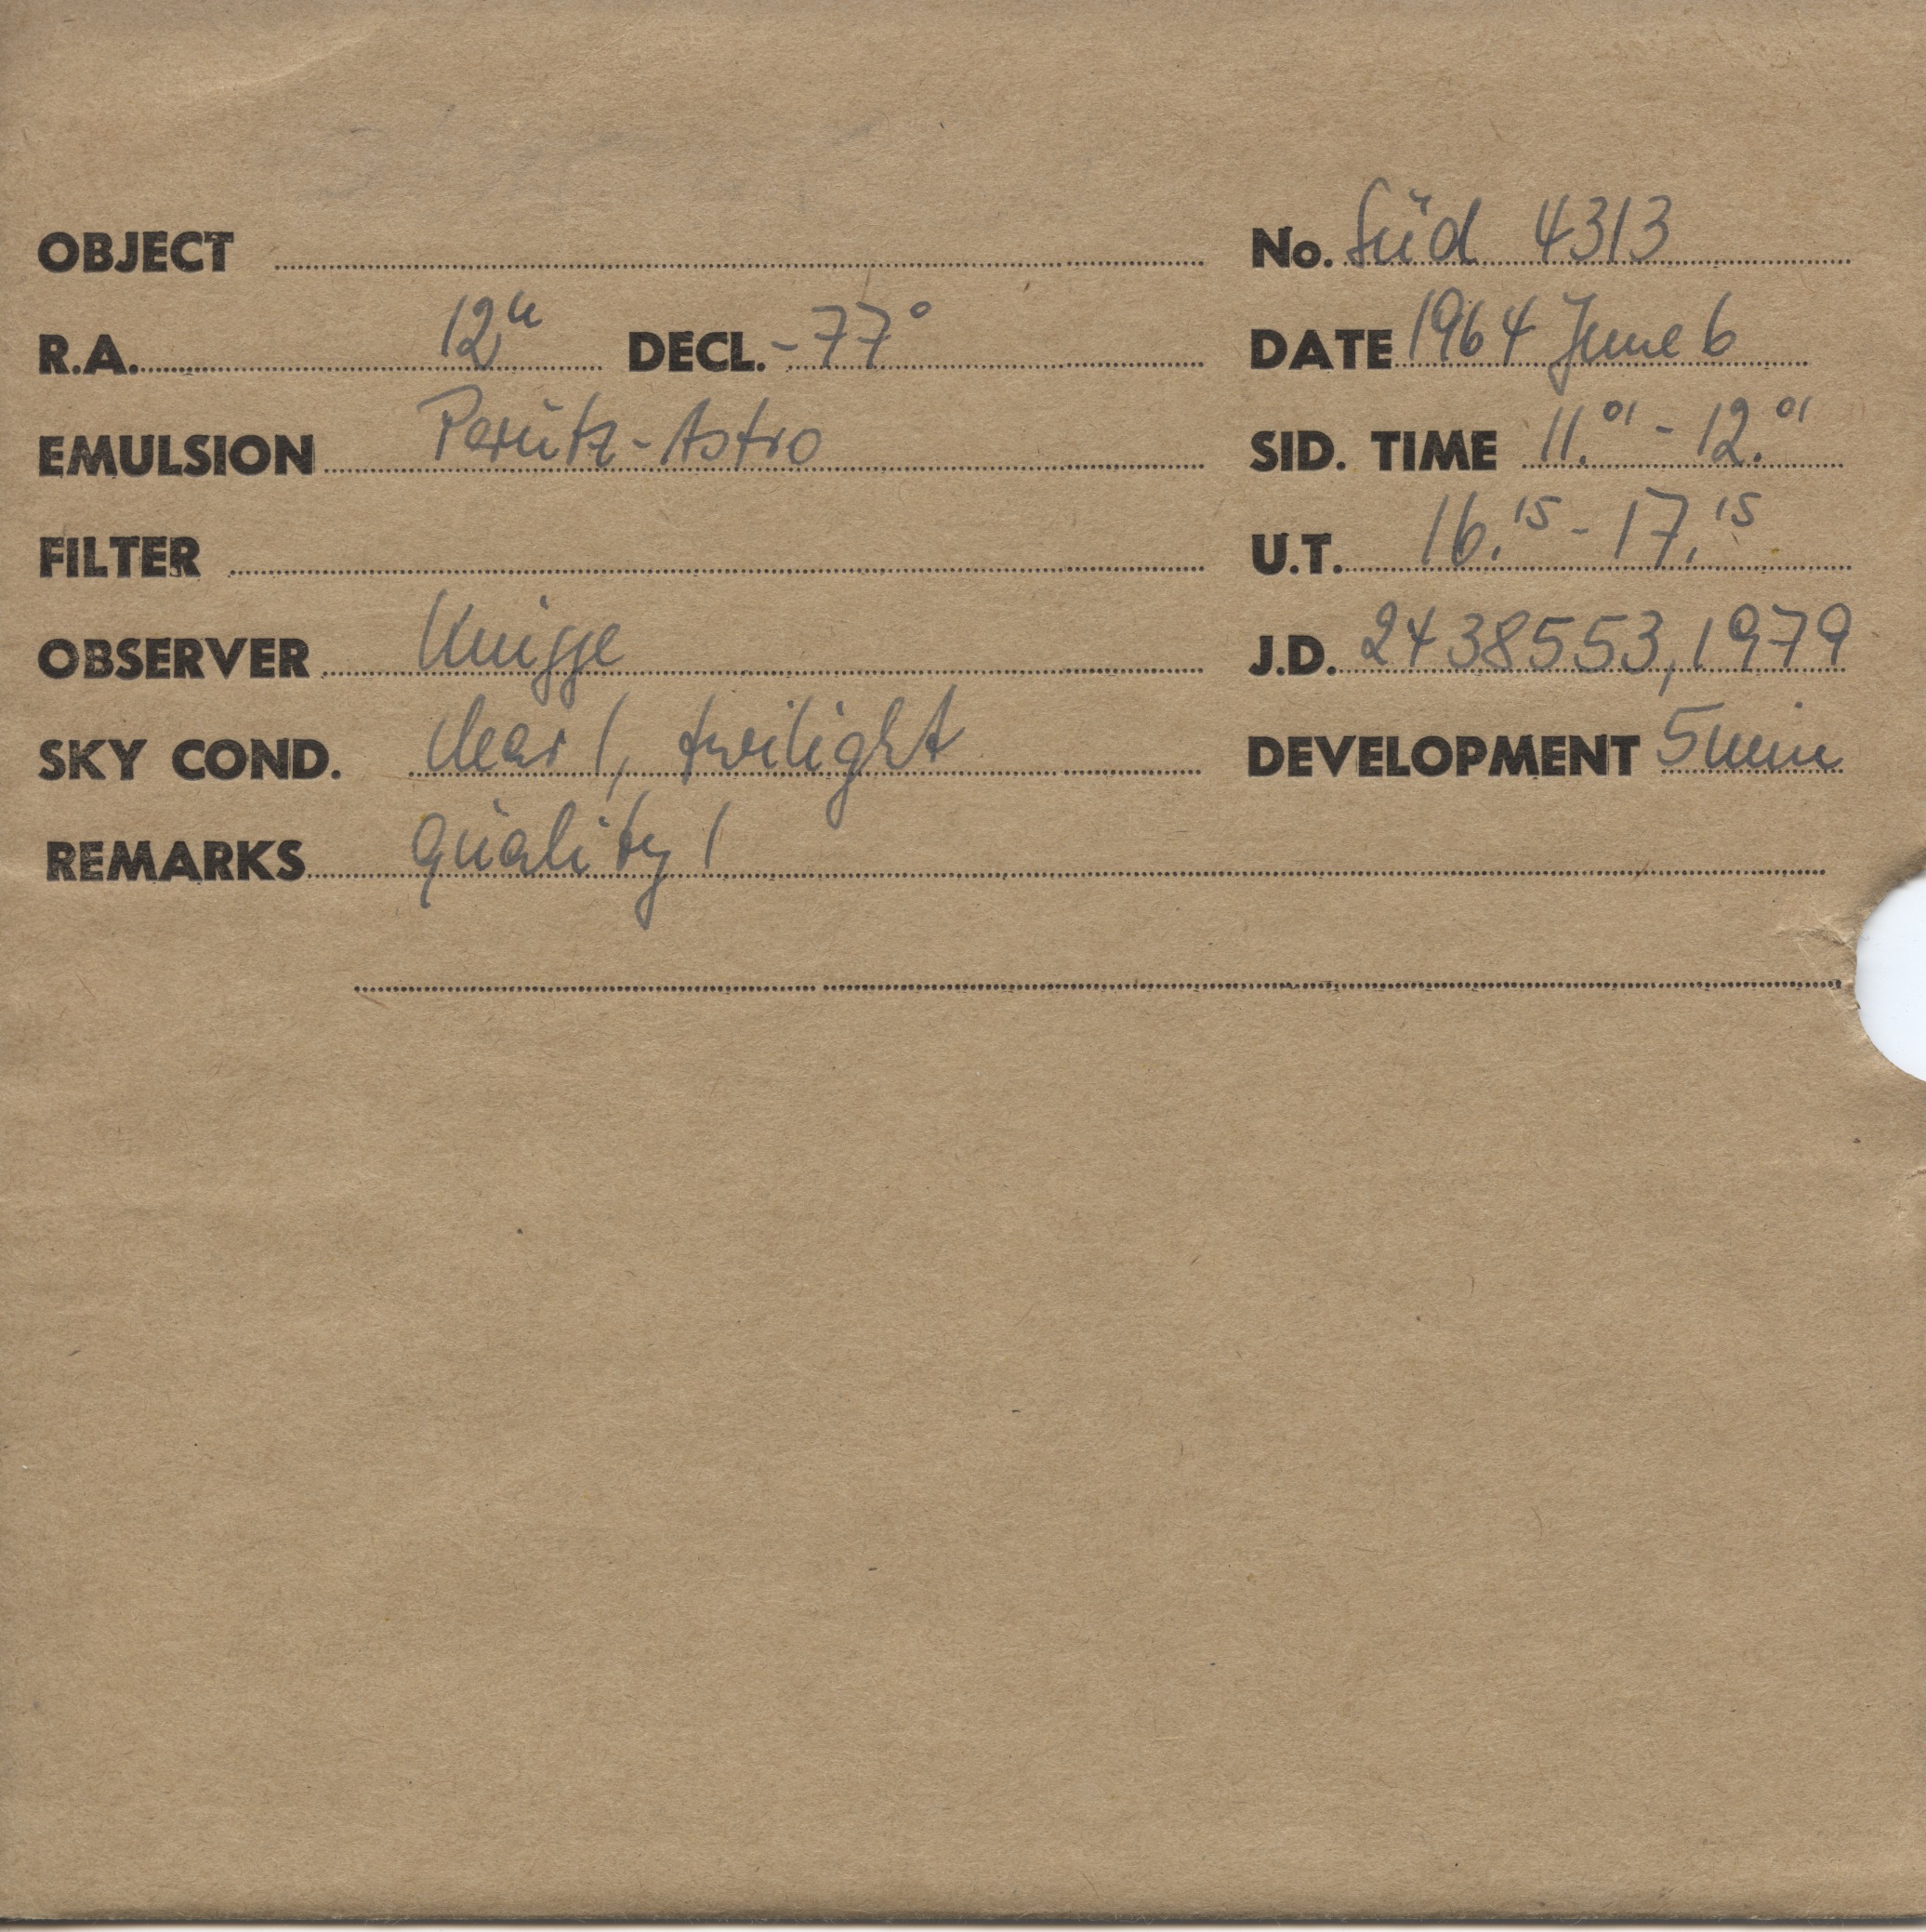 OBJECT No. Süd 4313
R.A. 12h DECL. -77° DATE 1964 June 6
EMULSION Perutz-Astro SID. TIME 11.01 - 12.01
FILTER U.T. 16.15 - 17.15
OBSERVER Knigge J.D. 2438553,1979
SKY COND. clear 1, twilight DEVELOPMENT 5 min
REMARKS quality 1